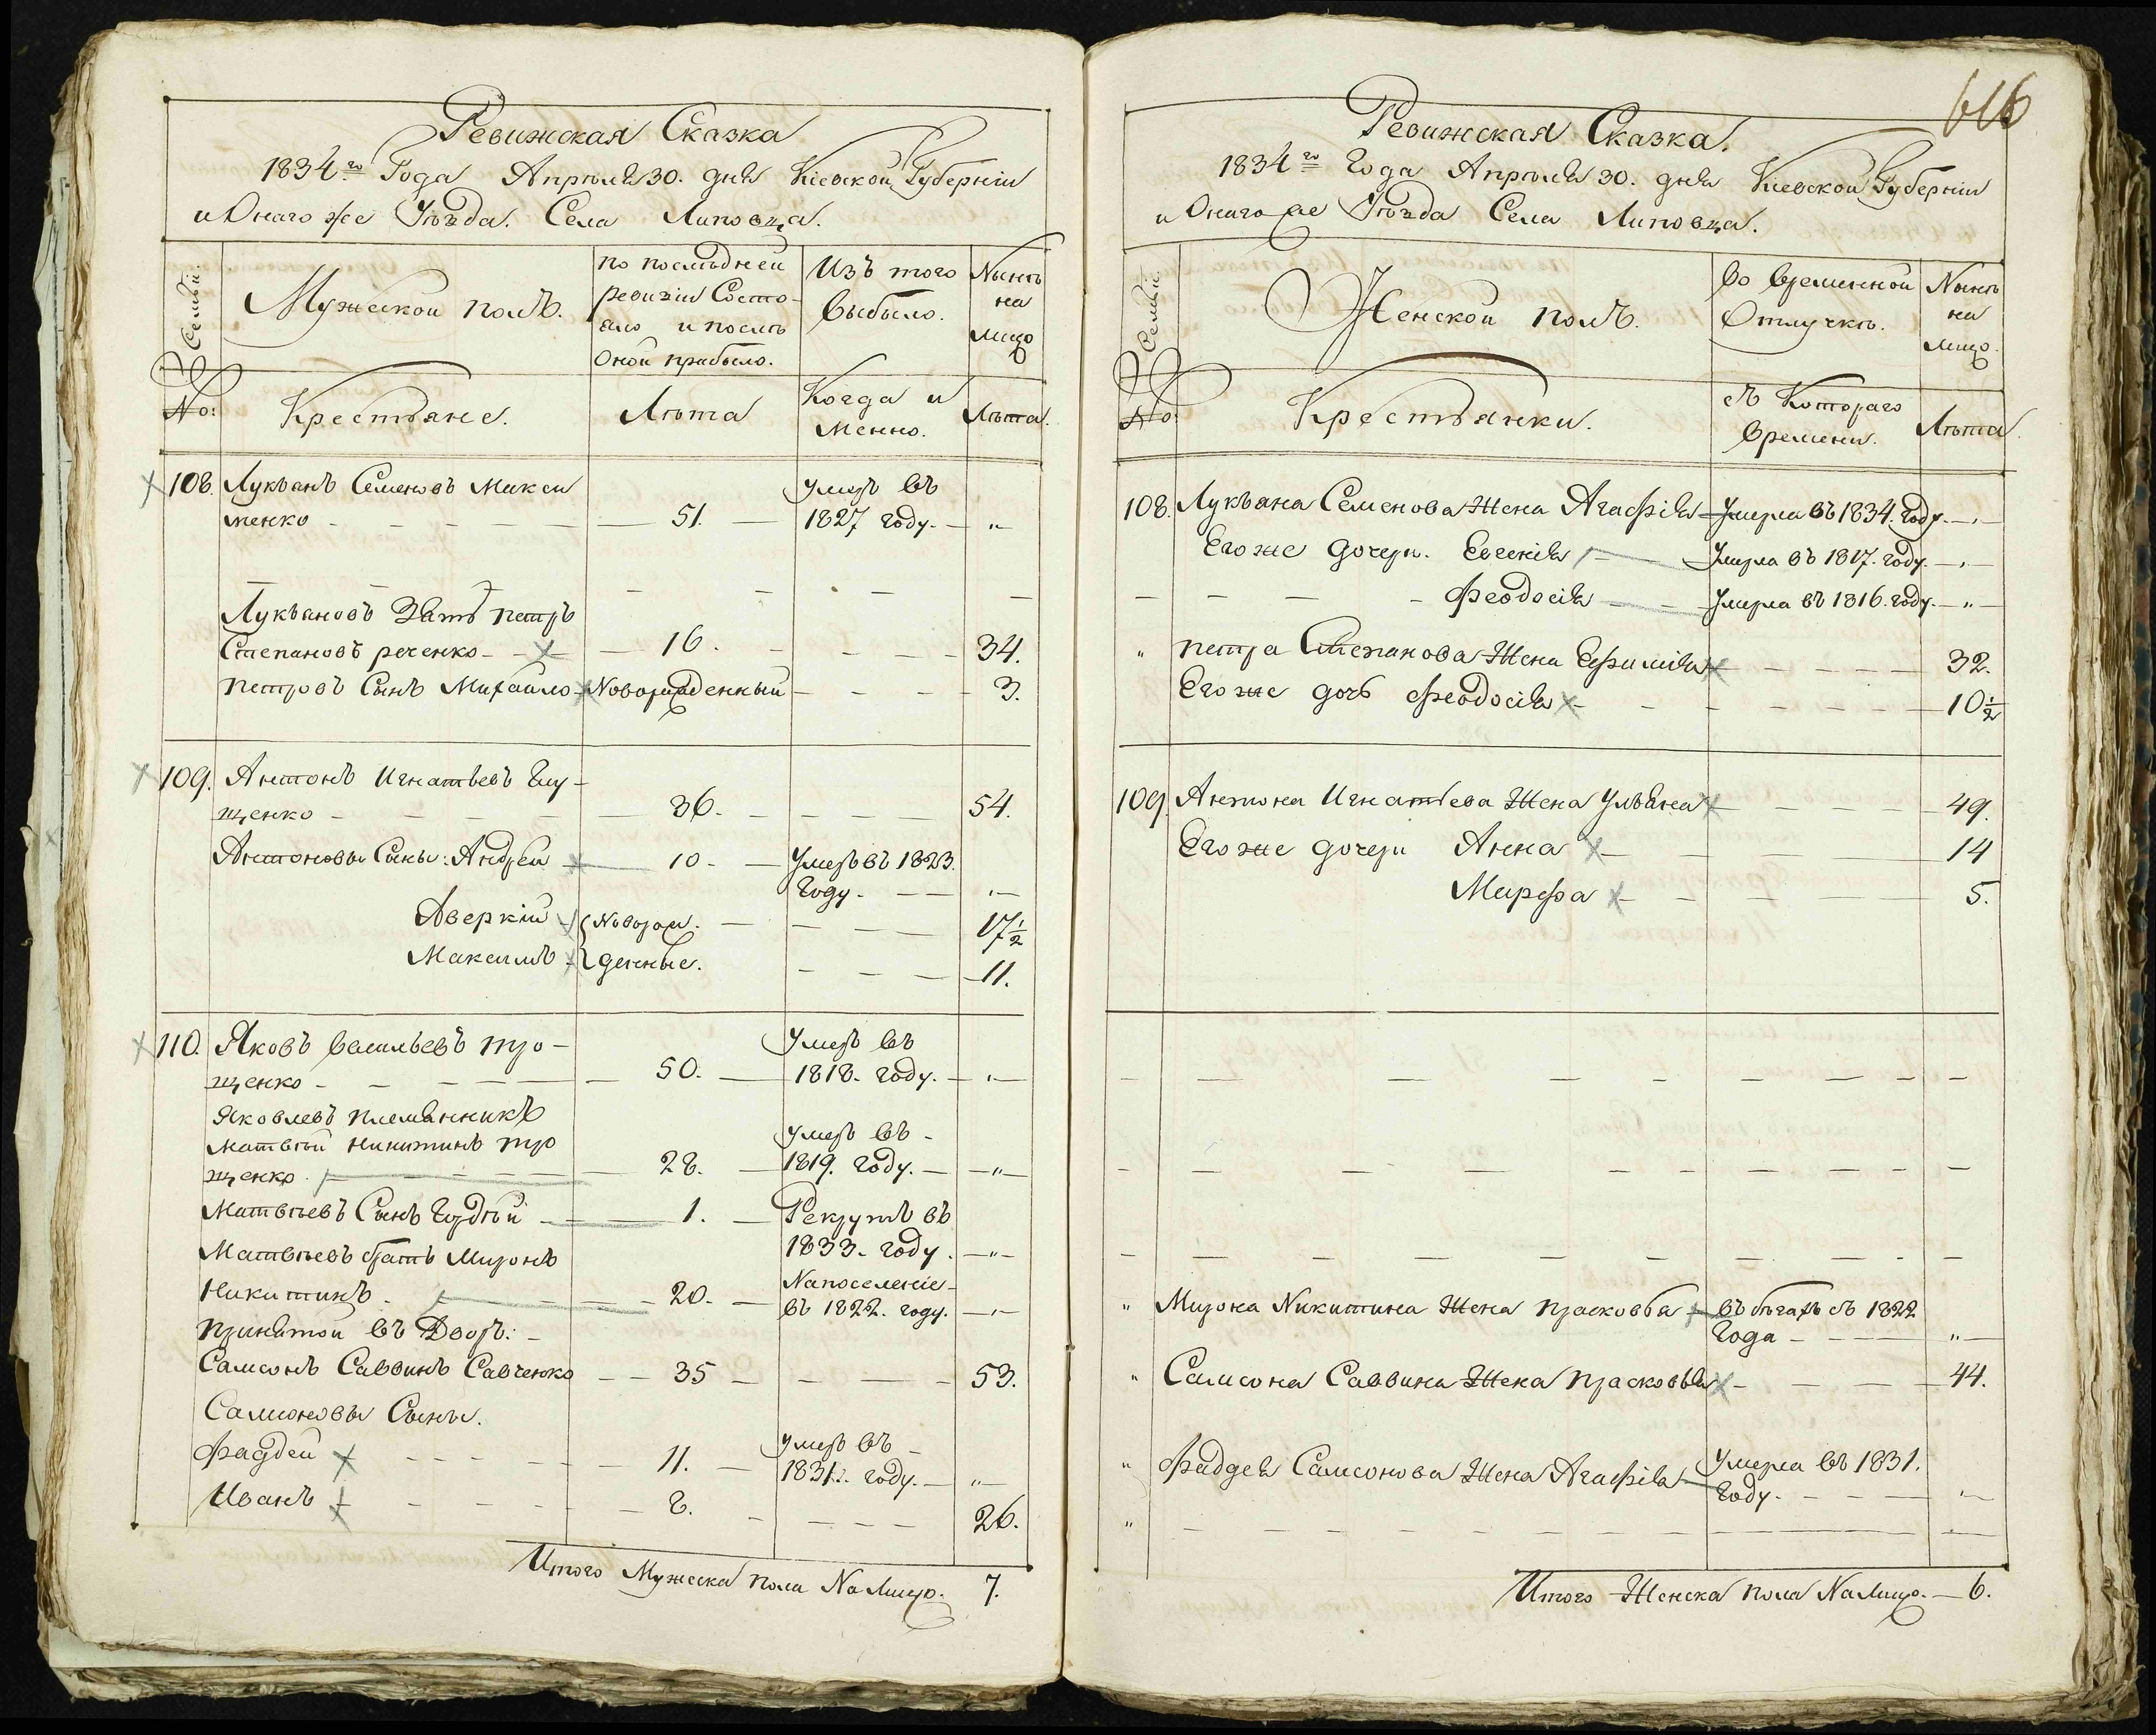 Ревижская Сказка
1834го Года Апрѣля 30. дня Кіевской Губерніи
и Онаго же Уѣзда. Села Липовца.
Семьи.
№:
Мужеской полъ.
по послѣдней
ревизіи Состо-
яло и послѣ
Оной прибыло.
Изъ того
Выбыло.
Нынѣ
на
лицо
Крестьяне.
Лѣта
Когда и
Менно.
Лѣта.
108. Лукьянъ Семеновъ Макси
менко - 51. - умеръ въ
1827 году. - „
Лукьяновъ Зять петръ
Степановъ - 16. - 34.
петровъ Сынъ Михайло - Новорожденный - 3.
109. Антонъ Игнатьевъ
щенко - 36. - 54.
Антоновы Сыны: Андрей - 10. - Умеръ въ 1823.
Году. - „
Аверкій - Новорож. - 17½
Максимъ - денные. - 11.
110. Яковъ васильевъ тро-
щенко - 50. - Умеръ въ
1818. году. - „
Яковлевъ племянникъ
матвѣй никитинъ тро
щенко. - 28. - умеръ въ -
1819. году. - „
Матвѣевъ Сынъ Гордѣй - 1. - Рекрутъ въ
1833. году. - „
Матвѣевъ братъ Миронъ
Никитинъ. - 20. - На поселеніе -
въ 1822. году. - „
принятой въ Дворъ: -
Самсонъ Саввинъ Савченко - 35 - 53.
Самсоновы Сыны.
Фаддей - 11. - умеръ въ -
1831. году. - „
Иванъ - 8. - 26.
Итого Мужеска пола На Лицо. 7.
616
Ревижская Сказка.
1834го Года Апрѣля 30. дня Кіевской Губерніи
и Онаго же Уѣзда Села Липовца.
Семьи.
№:
Женской полъ.
Во временной
Отлучкѣ.
Нынѣ
на
лицо.
Крестьянки.
съ Котораго
Времени.
Лѣта.
108. Лукьяна Семенова Жена Агафія - Умерла въ 1834. году - „
Его же дочери. Евгенія - Умерла въ 1817. году. - „
Феодосія - Умерла въ 1816. году. - „
„ петра Степанова Жена Ефимія - 32.
Его же дочь Феодосія - 10½
109. Антона Игнатьева Жена Ульяна - 49.
Его же дочери Анна - 14
Марфа - 5.
„ Мирона Никитина Жена прасковья - въ бѣгахъ съ 1822
Года - „
„ Самсона Саввина Жена прасковья - 44.
„ Фаддея Самсонова Жена Агафія - Умерла въ 1831.
Году. - „
Итого Женска пола На Лицо. - 6.